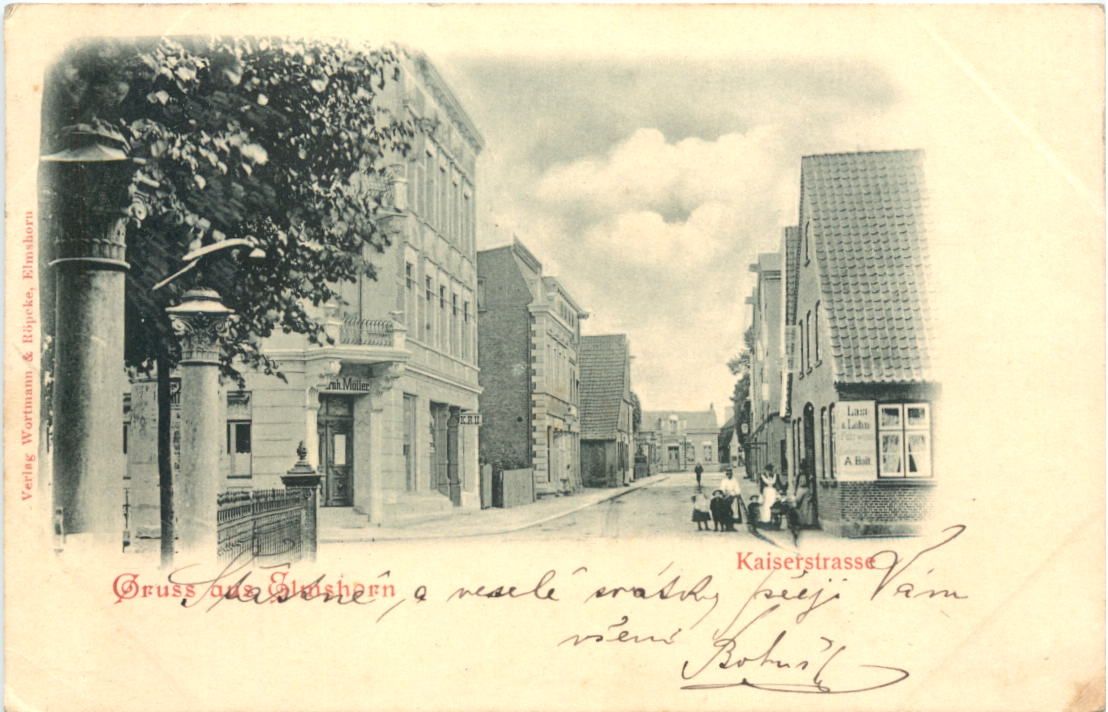 Verlag Wortmann & Röpcke, Elmshorn
Joh. Möller
Lohn
A. Bolt
Kaiserstrasse
Gruss aus Elmshorn
Šťastné a veselé svátky přeji Vám
všem